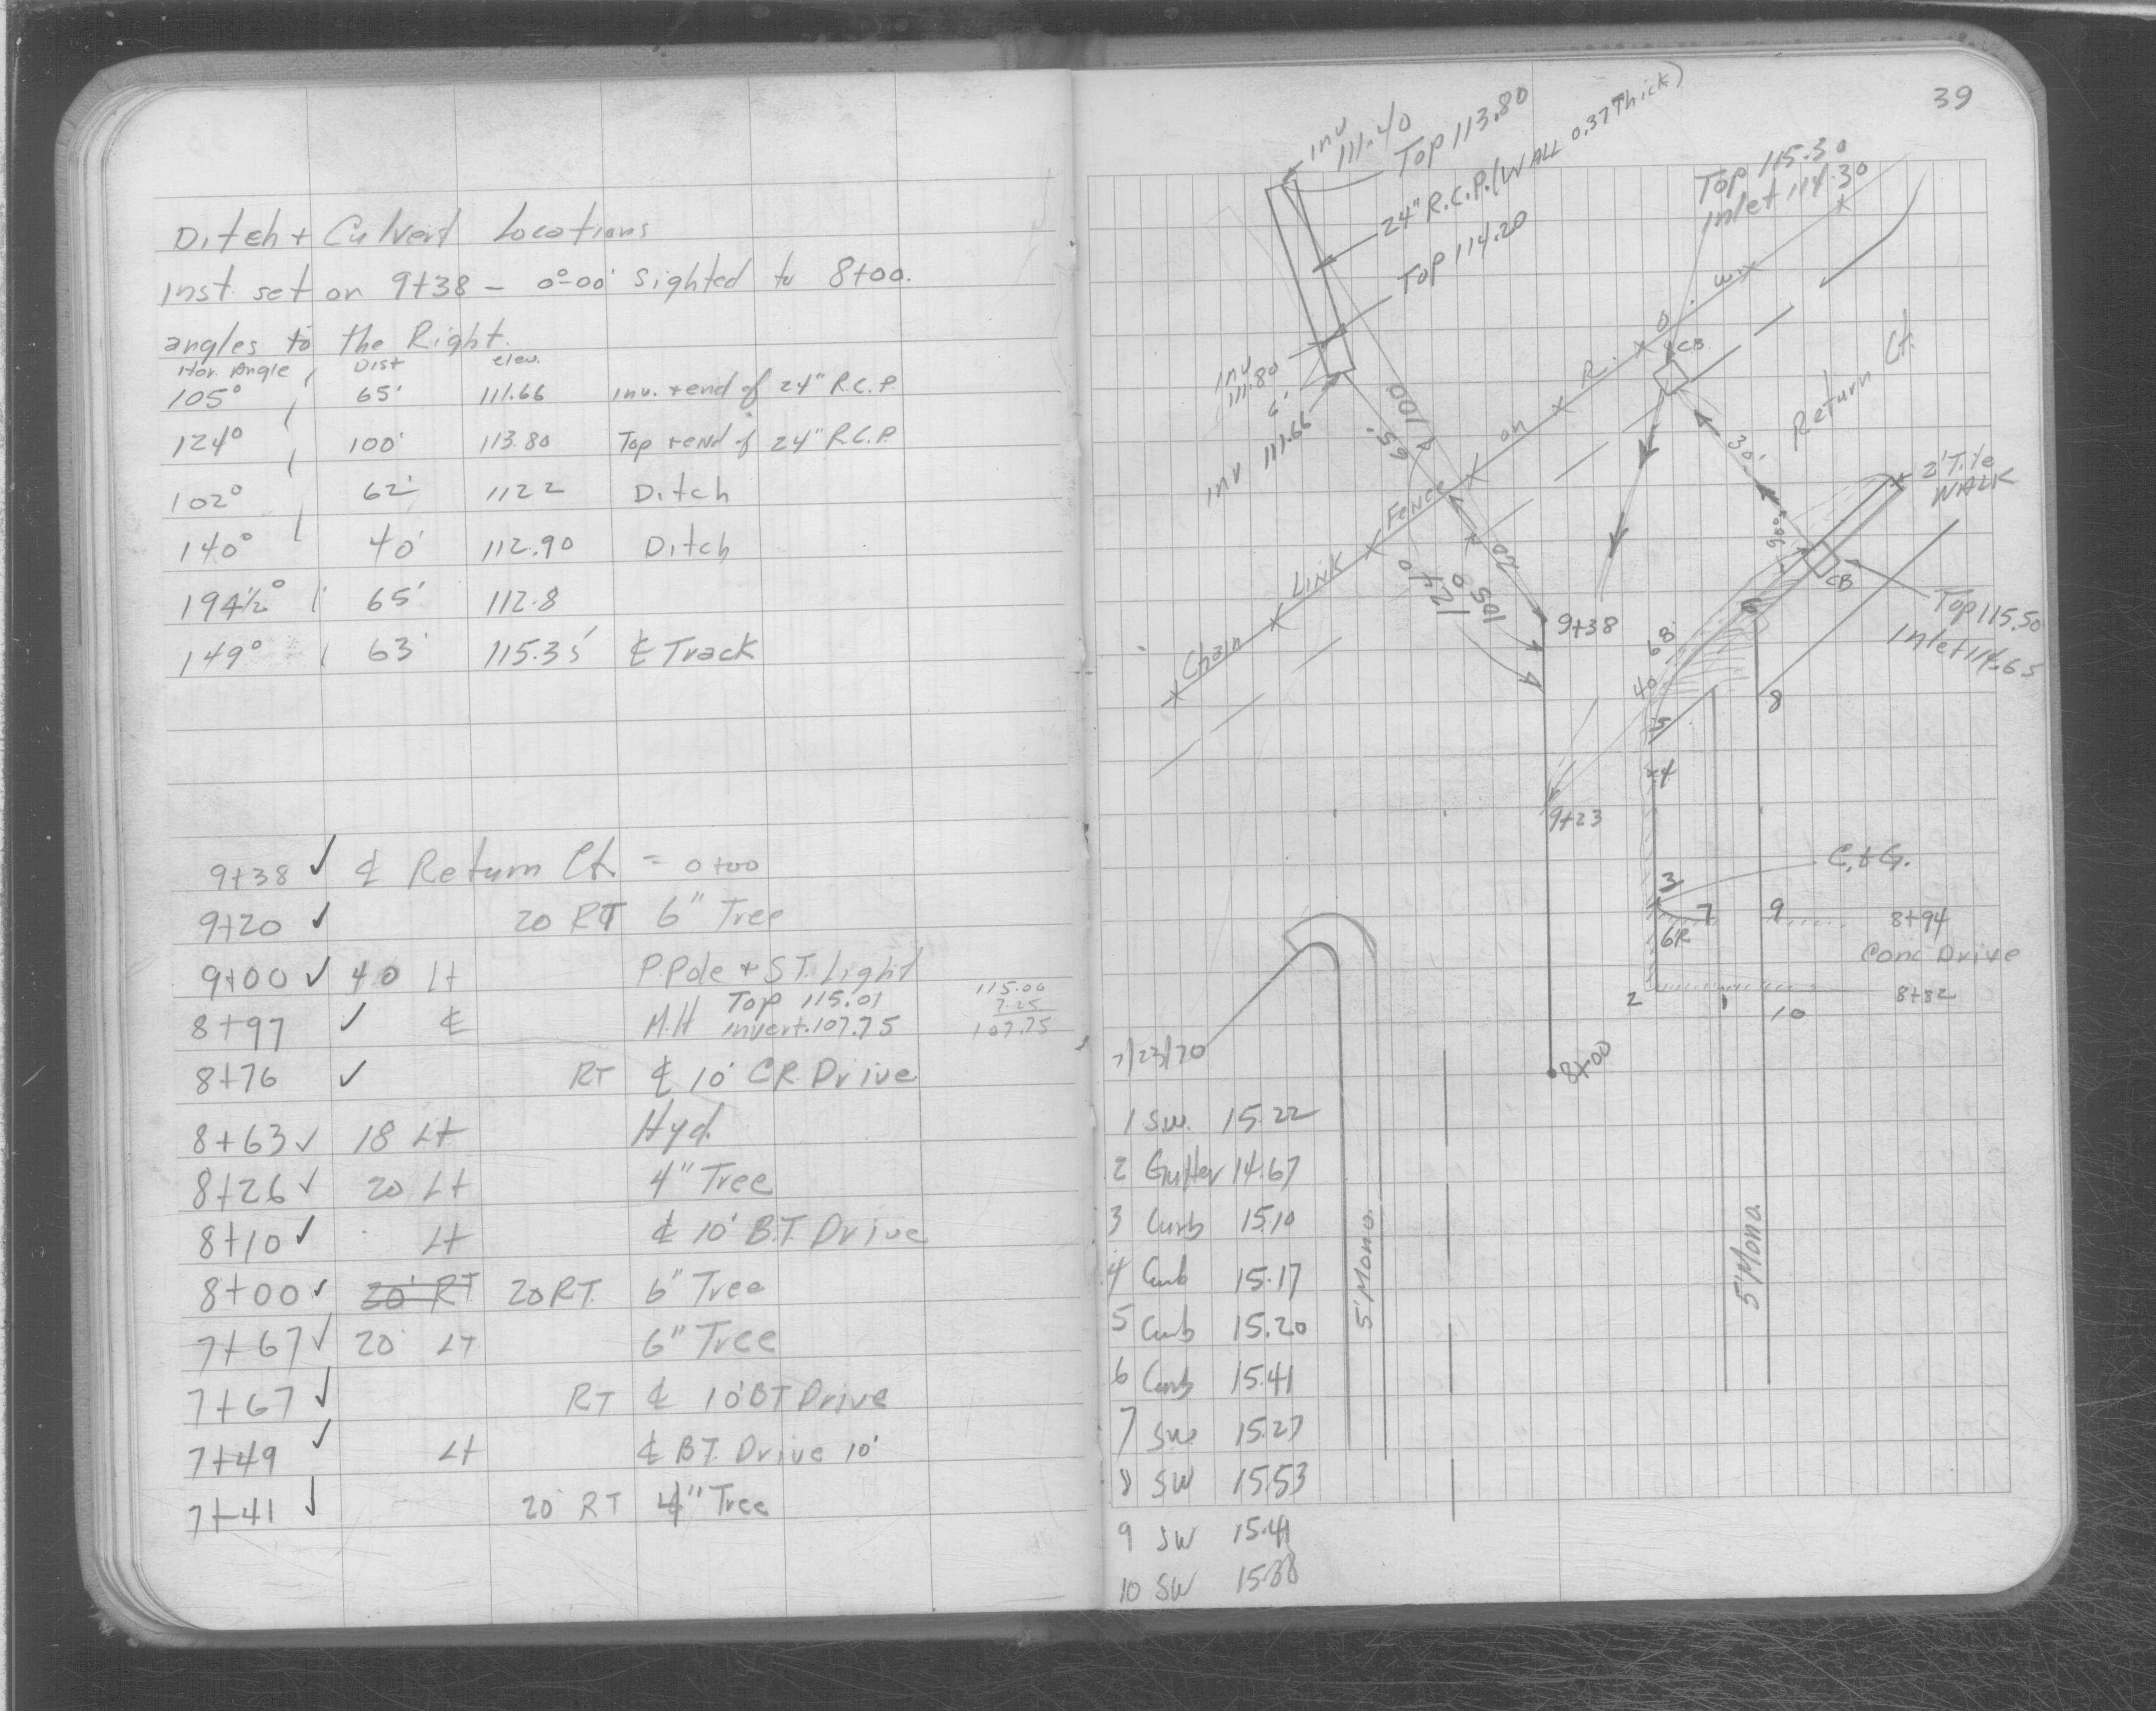 Ditch + Culvert Locations
Inst. set on 9+38 - 0°-00' Sighted to 8+00.
angles to the Right.
Hor. Angle Dist elev.
105° 65' 111.66 Inv. + end of 24" R.C.P.
124° 100' 113.80 Top + end of 24" R.C.P.
102° 62' 112.2 Ditch
140° 40' 112.90 Ditch
194½° 65' 112.8
149° 63' 115.35 ℄ Track
9+38 ✓ ℄ Return Ct. = 0+00
9+20 ✓ 20 RT 6" Tree
9+00 ✓ 40 Lt P.Pole + ST. Light
8+97 ✓ ℄ M.H Top 115.01
invert. 107.75
115.00
7.25
107.75
8+76 ✓ RT ℄ 10' CR. Drive
8+63 ✓ 18 Lt Hyd.
8+26 ✓ 20 Lt 4" Tree
8+10 ✓ Lt ℄ 10' B.T. Drive
8+00 ✓ 20' RT 20 RT. 6" Tree
7+67 ✓ 20 LT 6" Tree
7+67 ✓ RT ℄ 10' BT Drive
7+49 ✓ Lt ℄ BT. Drive 10'
7+41 ✓ 20 RT 4" Tree
39
Inv
111.40
Top 113.80
24" R.C.P. (WALL 0.37 Thick)
Top 114.20
Top 115.30
Inlet 114.30
Inv
111.80
6'
Inv 111.66
100
65'
Chain Link Fence on R.O.W.
CB
Return Ct.
30'
2' Tile
WALK
90°
CB
20
105°
124°
9+38
Top 115.50
Inlet 114.65
6
8'
40
5
8
4
9+23
C.+G.
3
7
9
8+94
6'R
Conc Drive
2
1
10
8+82
7/23/70
8+00
1 SW. 15.22
2 Gutter 14.67
3 Curb 15.10
4 Curb 15.17
5 Curb 15.20
6 Curb 15.41
7 SW 15.27
8 SW 15.53
9 SW 15.41
10 SW 15.38
5' Mono.
5' Mono.